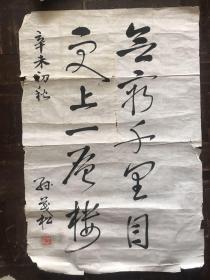 欲穷千里目
更上一层楼
辛未初秋
孙茂松